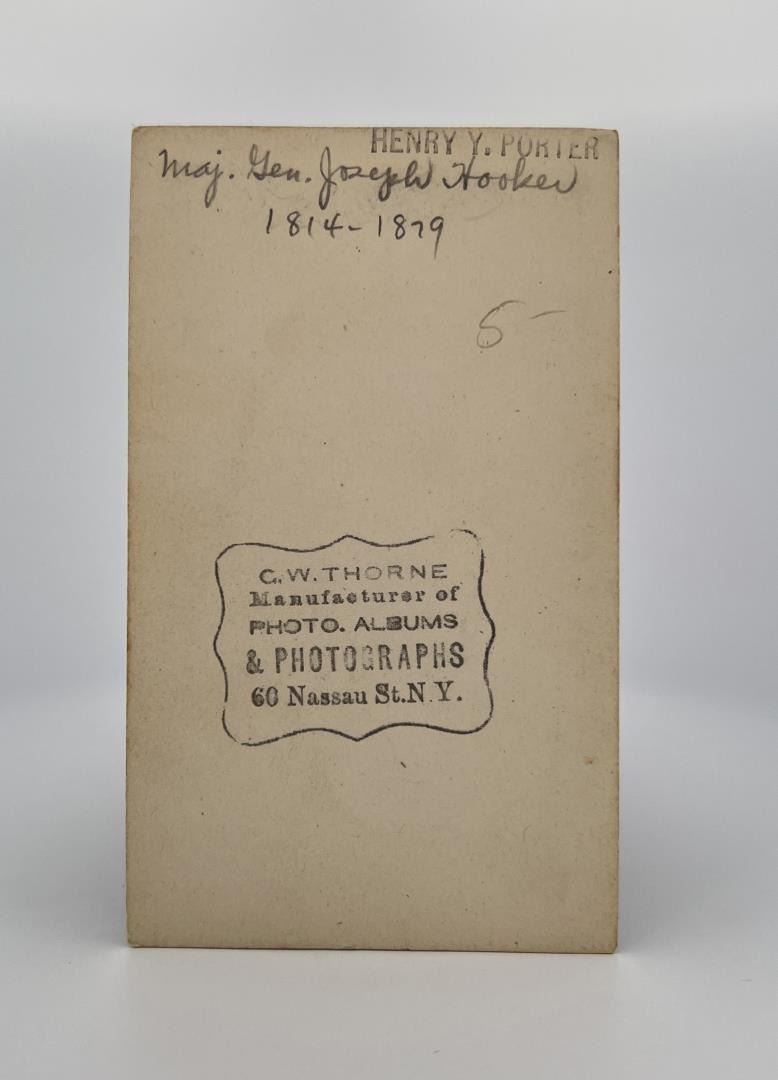 HENRY Y. PORTER
Maj. Gen. Joseph Hooker
1814-1879
5-
C. W. THORNE
Manufacturer of
PHOTO. ALBUMS
& PHOTOGRAPHS
60 Nassau St. N. Y.